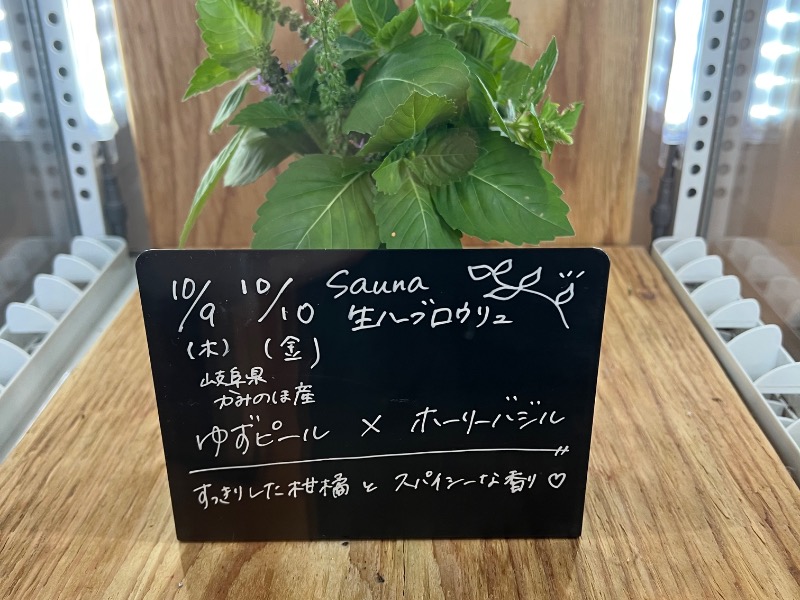 10/9 10/10 Sauna
(木) (金) 生ハーブロウリュ
岐阜県
かみのほ産
ゆずピール × ホーリーバジル
すっきりした柑橘と スパイシーな香り♡